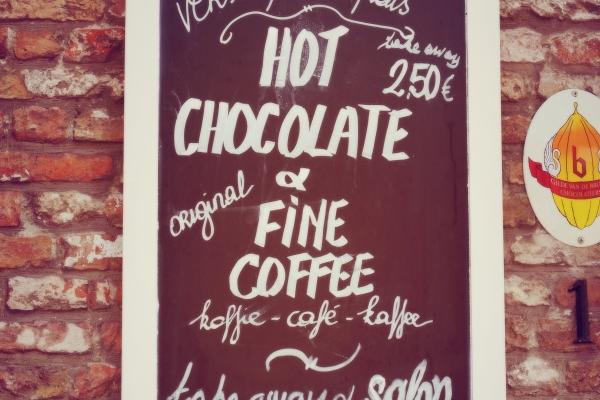 HOT
take away
2,50€
CHOCOLATE
&
original
FiNE
COFFEE
koffie - café - kaffee
take away & salon
b
GILDE VAN DE
CHOCOLATIERS
1